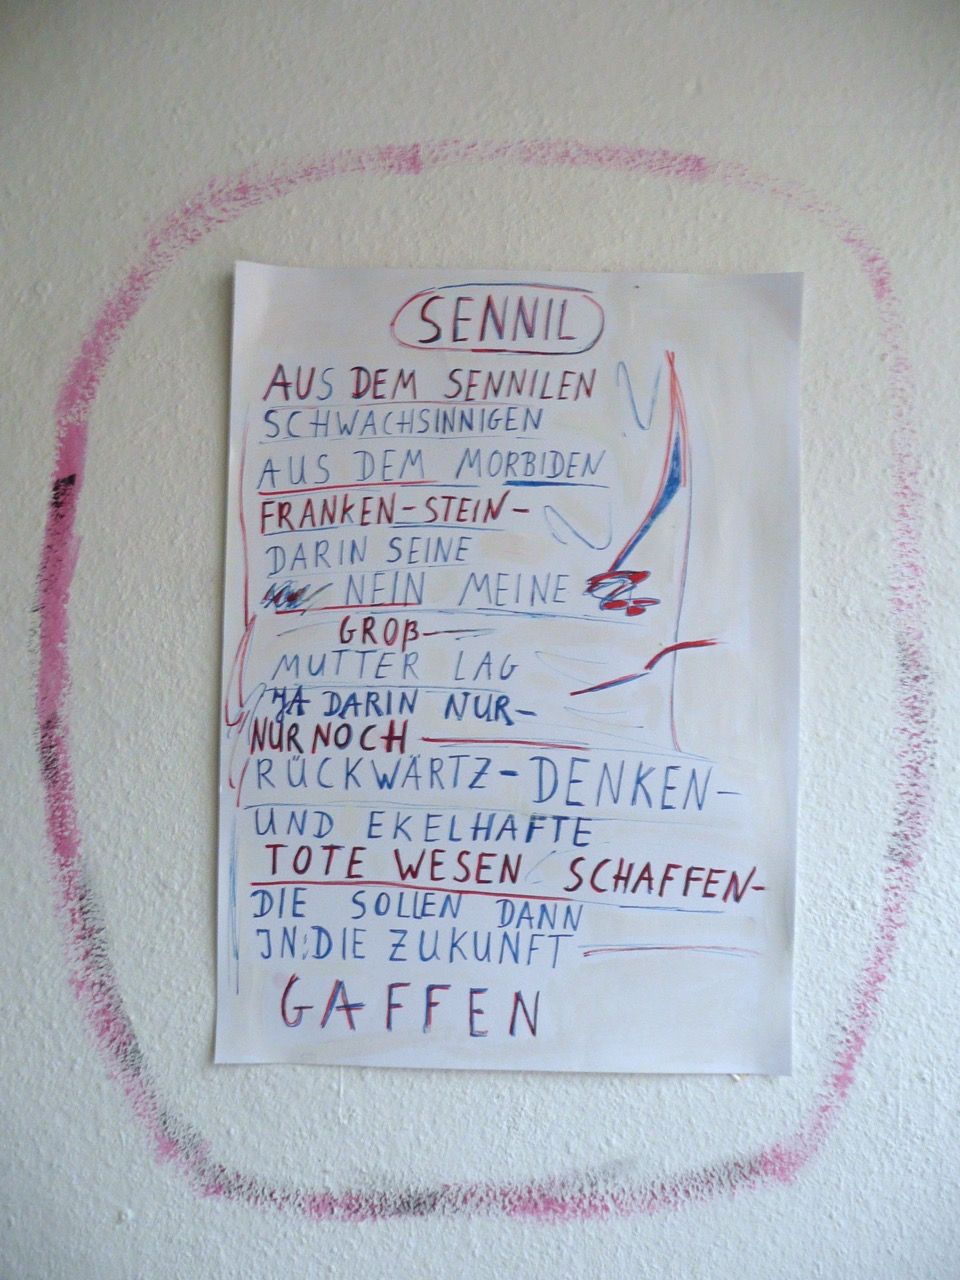 SENNIL
AUS DEM SENNILEN
SCHWACHSINNIGEN
AUS DEM MORBIDEN
FRANKEN-STEIN-
DARIN SEINE
NEIN MEINE
GROß-
MUTTER LAG
JA DARIN NUR-
NUR NOCH
RÜCKWÄRTZ-DENKEN-
UND EKELHAFTE
TOTE WESEN SCHAFFEN-
DIE SOLLEN DANN
IN:DIE ZUKUNFT
GAFFEN